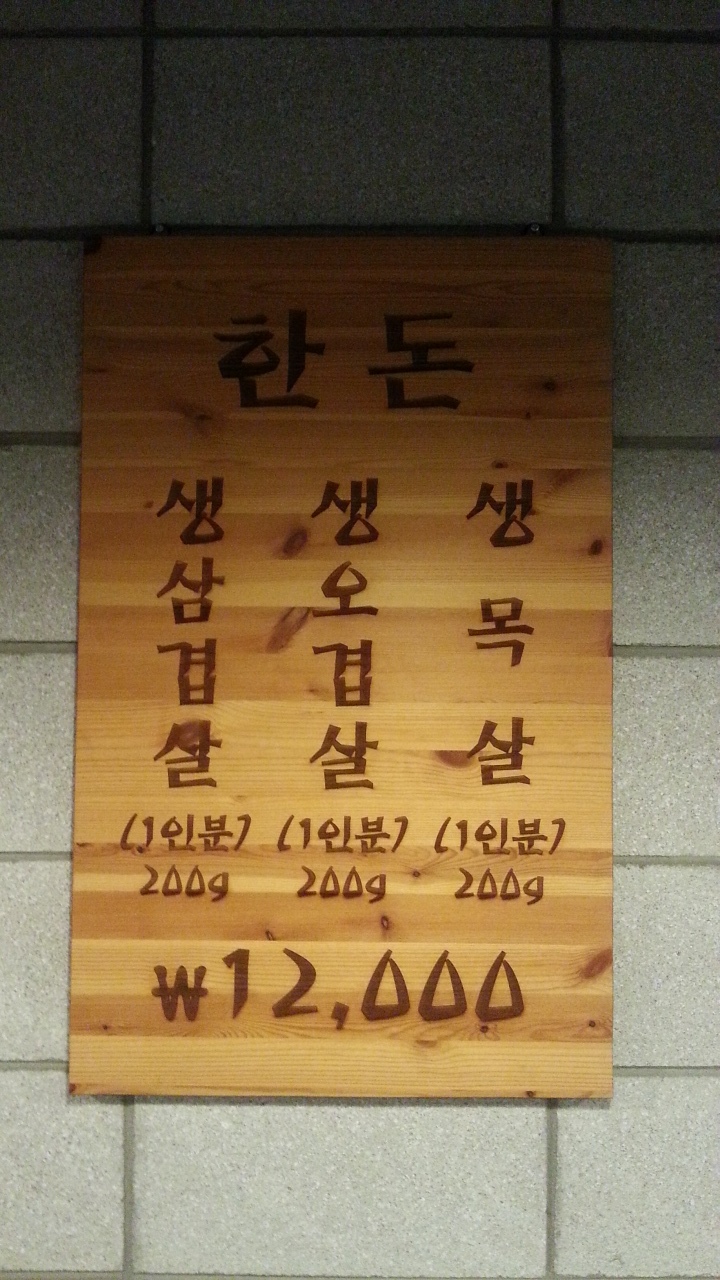 한돈
생삼겹살
(1인분)
200g
생오겹살
(1인분)
200g
생목살
(1인분)
200g
₩12,000